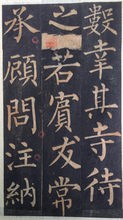 數幸其寺待
之若賓友常
承顧問注納